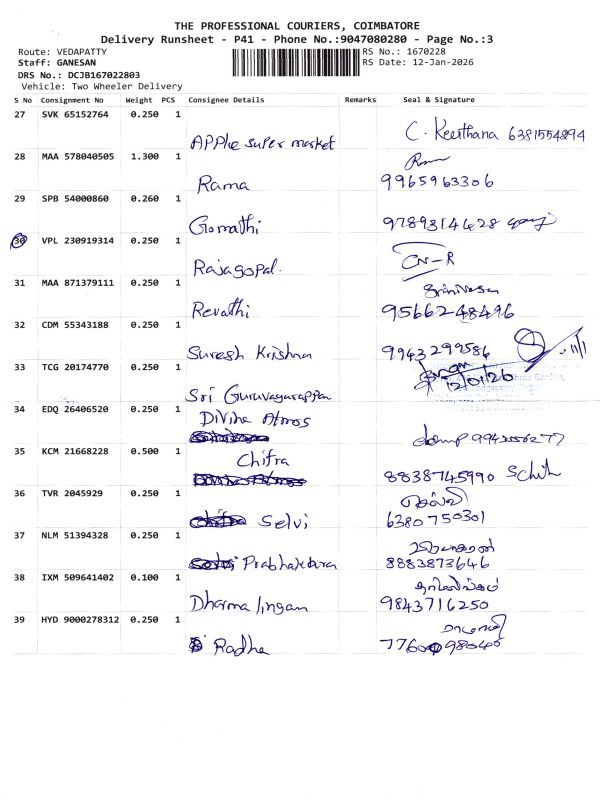 THE PROFESSIONAL COURIERS, COIMBATORE
Delivery Runsheet - P41 - Phone No.:9047080280 - Page No.:3
Route: VEDAPATTY
RS No.: 1670228
Staff: GANESAN
RS Date: 12-Jan-2026
DRS No.: DCJB167022803
Vehicle: Two Wheeler Delivery
S No Consignment No Weight PCS Consignee Details Remarks Seal & Signature
27 SVK 65152764 0.250 1
APPHe super market C. Keerthana 6381554894
28 MAA 578040505 1.300 1
Rama 9965963306
29 SPB 54000860 0.260 1
Gomathi 9789314628
30 VPL 230919314 0.250 1
Rajagopal. CN-R
31 MAA 871379111 0.250 1 Srinivasan
Revathi 9566248496
32 CDM 55343188 0.250 1
Suresh Krishna 9943299586
33 TCG 20174770 0.250 1 12/01/26
Sri Guruvayurappan
34 EDQ 26406520 0.250 1 Divine Atmos
35 KCM 21668228 0.500 1 Chitra
8838745990
36 TVR 2045929 0.250 1 செல்வி
Selvi 6380750301
37 NLM 51394328 0.250 1
Prabhakaran 8883873646
38 IXM 509641402 0.100 1
Dharmalingam 9843716250
39 HYD 9000278312 0.250 1
Radha